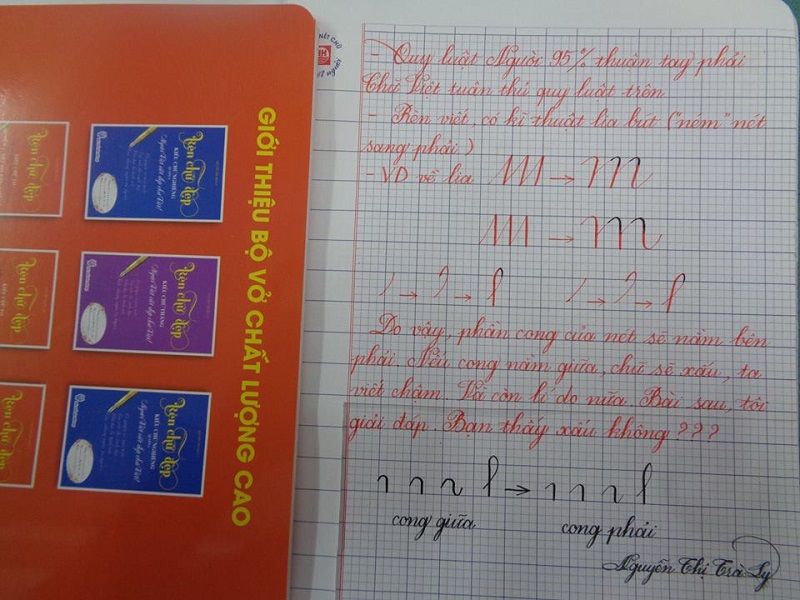 GIỚI THIỆU BỘ VỞ CHẤT LƯỢNG CAO
Rèn chữ đẹp
KIỂU CHỮ NGHIÊNG
Người Việt viết đẹp chữ Việt
Rèn chữ đẹp
KIỂU CHỮ ĐỨNG
Người Việt viết đẹp chữ Việt
Rèn chữ đẹp
KIỂU CHỮ NGHIÊNG
Người Việt viết đẹp chữ Việt
- Quy luật Người 95% thuận tay phải
Chữ Việt tuân thủ quy luật trên
- Rèn viết, có kĩ thuật lia bút ("ném" nét
sang phải)
- VD về lia m → m
m → m
Do vậy, phần cong của nét sẽ nằm bên
phải. Nếu cong nằm giữa, chữ sẽ xấu, ta
viết chậm. Và còn lí do nữa Bài sau, tôi
giải đáp. Bạn thấy xấu không ???
cong giữa
cong phải
Nguyễn Thị Trà Ly